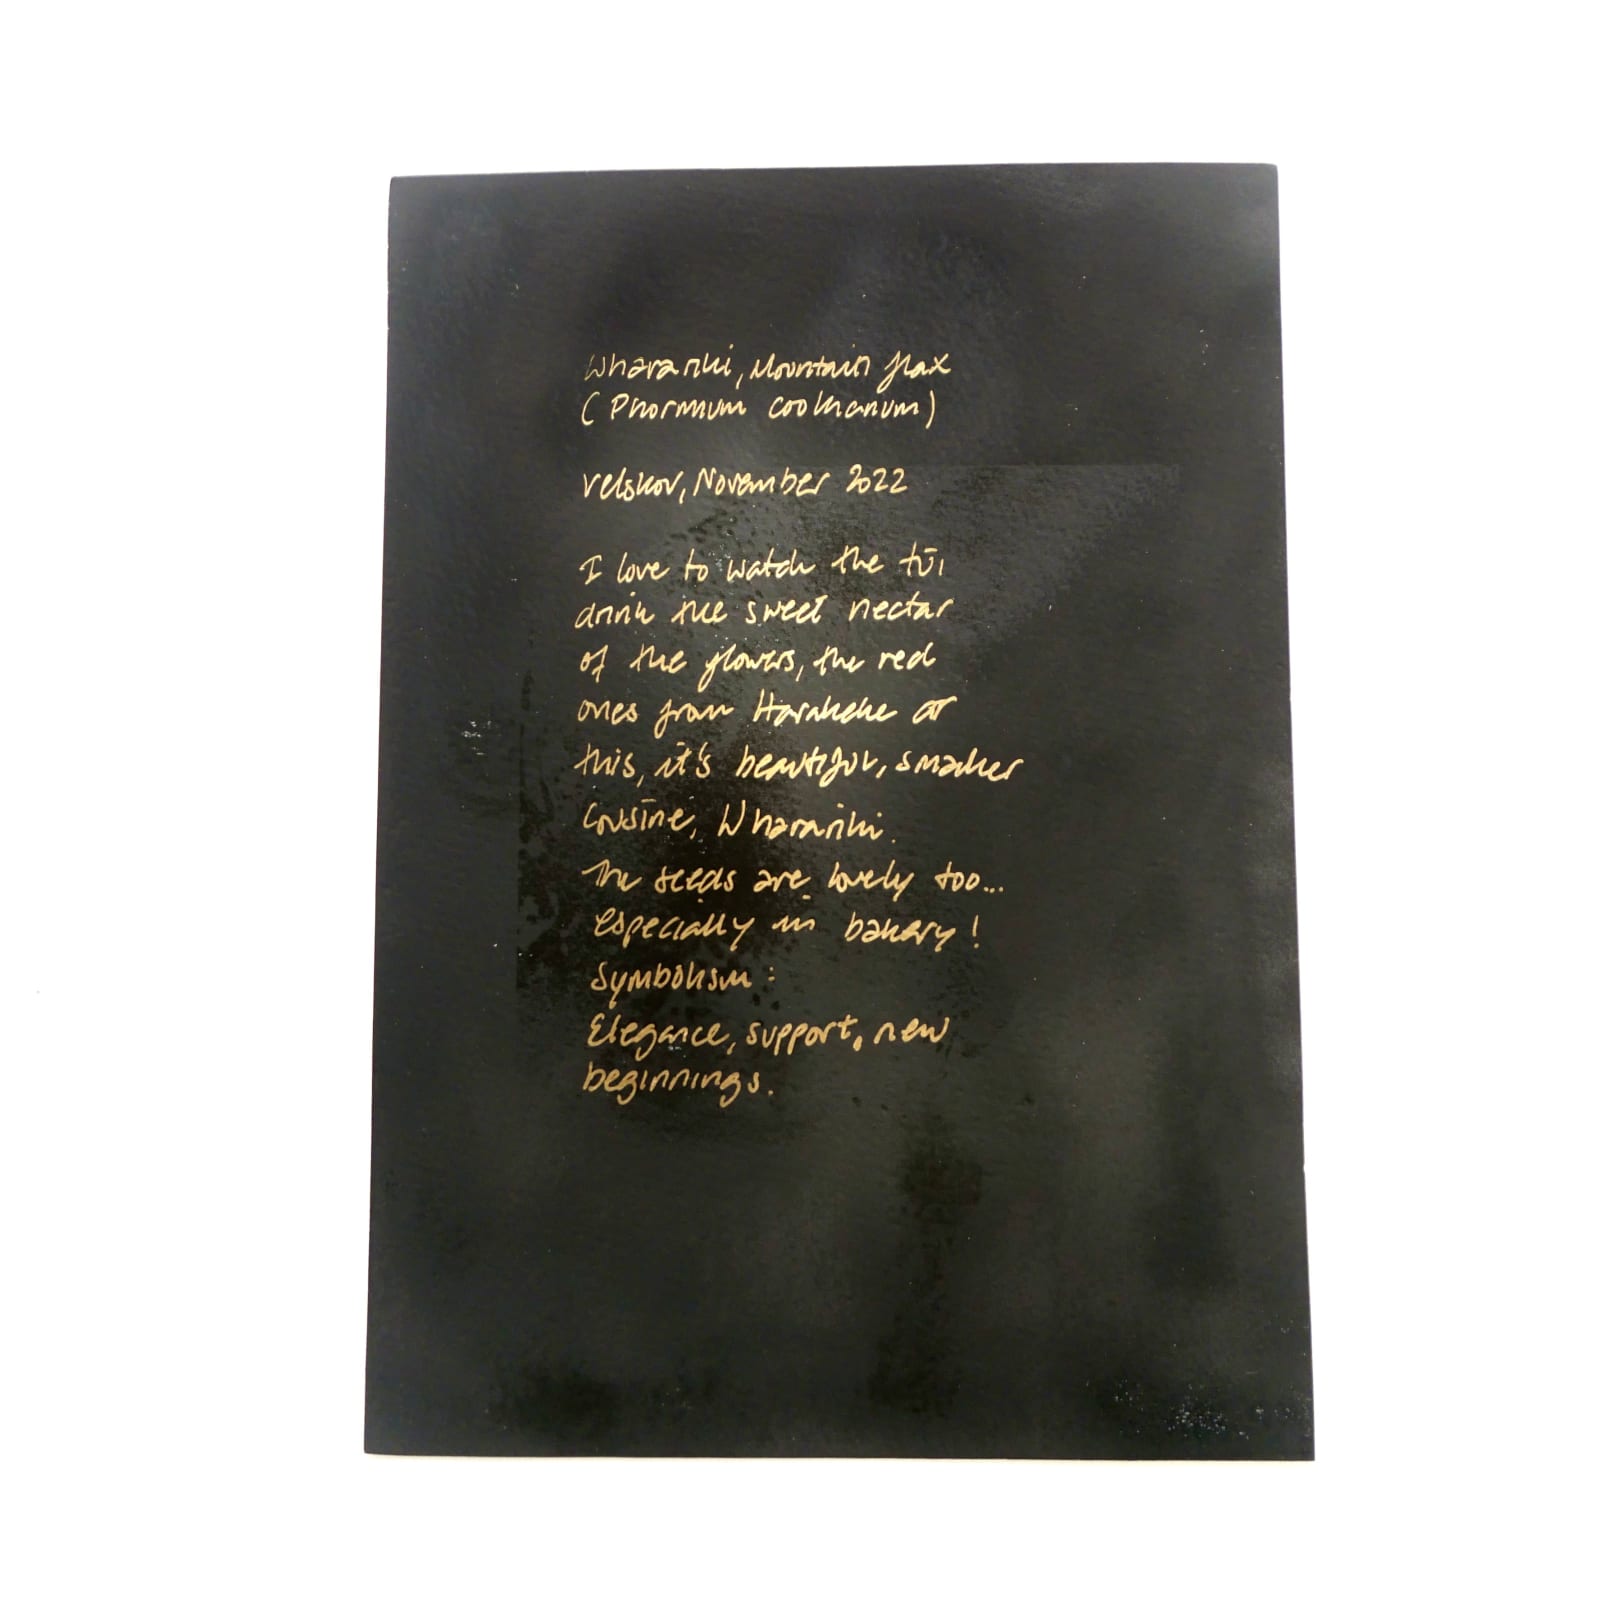 Wharariki, Mountain flax
(Phormium cookianum)
velskov, November 2022
I love to watch the tūi
drink the sweet nectar
of the flowers, the red
ones from Harakeke or
this, it's beautiful, smaller
Cousine, Wharariki.
The seeds are lovely too...
especially in bakery!
Symbolism:
Elegance, support, new
beginnings.